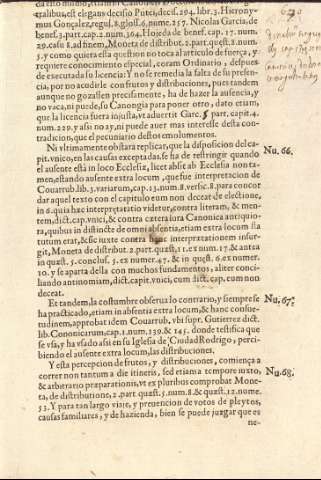 eralibus, est elegans decisio Putei, decis. 194. libr. 3. Hierony-
mus Gonçalez, regul. 8. glos. 6. nume. 257. Nicolas Garcia, de
benef. 3. part. cap. 2. num. 364. Hojeda de benef. cap. 17. num.
29. casu 8. ad finem, Moneta de distribut. 2. part. quæst. 2. num.
5. y como quiera esta question no toca al articulo de fuerça, y
requiere conocimiento especial, coram Ordinario, despues
de executada su licencia: Y no se remedia la falta de su presen-
cia, por no acudirle con frutos y distribuciones, pues tandem
aunque no gozassen precissamente, ha de hazer la ausencia, y
no vaca, ni puede, su Canongia para poner otro, dato etiam,
que la licencia fuera injusta, vt aduertit Garc. 5 part. capit. 4.
num. 229. y assi no ay, ni puede auer mas interesse desta con-
tradicion, que el pecuniario destos emolumentos.
Ni vltimamente obstara replicar, que la disposicion del ca-
pit. vnico, en las causas exceptadas, se ha de restringir quando
el ausente està in loco Ecclesiæ, licet absit ab Ecclesia non ta-
men, estando ausente extra locum, que fue interpretacion de
Couarrub. lib. 3. variarum, cap. 13. num. 8. versic. 8. para concor
dar aquel texto con el capitulo cum non deceat de electione,
in 6. quia hæc interprętatio videtur, contra literam, & men-
tem, dict. cap. vnici, & contra cætera iura Canonica antiquio-
ra, quibus in distincte de omni absentia, etiam extra locum sta
tutum erat, & sic iuxte contra hanc interpretationem insur-
git, Moneta de distribut. 2. part. quæst. 11. ex num. 17. & antea
in quæst. 5. conclus. 5. ex numer. 47. & in quest. 6. ex numer.
10. y se aparta della con muchos fundamentos, aliter conci-
liando antinomiam, dict. capit. vnici, cum dict. cap. cum non
deceat.
Nu. 66.
Et tandem, la costumbre obserua lo contrario, y siempre se
ha practicado, etiam in absentia extra locum, & hanc consue-
tudinem, approbat idem Couarrub. vbi supr. Gutierrez dict.
lib. Canonicarum, cap. 1. num. 139. & 145. donde testifica que
se vsa, y ha vsado assi en su Iglesia de Ciudad Rodrigo, perci-
biendo el ausente extra locum, las distribuciones.
Nu. 67.
Y esta percepcion de frutos, y distribuciones, comiença a
correr non tantum a die itineris, sed etiam a tempore iuxto,
& arbitrario præparationis, vt ex pluribus comprobat Mone-
ta, de distributione, 2. part. quæst. 5. num. 8. & quæst. 12. nume.
53. Y para tan largo viaje, y preuencion de votos de pleytos,
causas familiares, y de hazienda, bien se puede juzgar que es
Nu. 68.
ne-